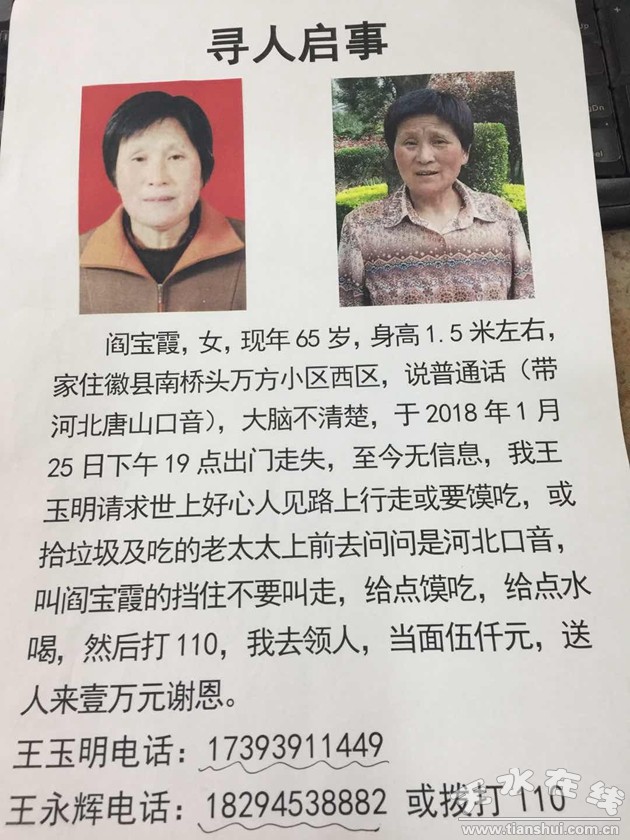 寻人启事
阎宝霞，女，现年65岁，身高1.5米左右，
家住徽县南桥头万方小区西区，说普通话（带
河北唐山口音），大脑不清楚，于2018年1月
25日下午19点出门走失，至今无信息，我王
玉明请求世上好心人见路上行走或要馍吃，或
拾垃圾及吃的老太太上前去问问是河北口音，
叫阎宝霞的挡住不要叫走，给点馍吃，给点水
喝，然后打110，我去领人，当面伍仟元，送
人来壹万元谢恩。
王玉明电话：17393911449
王永辉电话：18294538882 或拨打110
天水在线
www.tianshui.com.cn